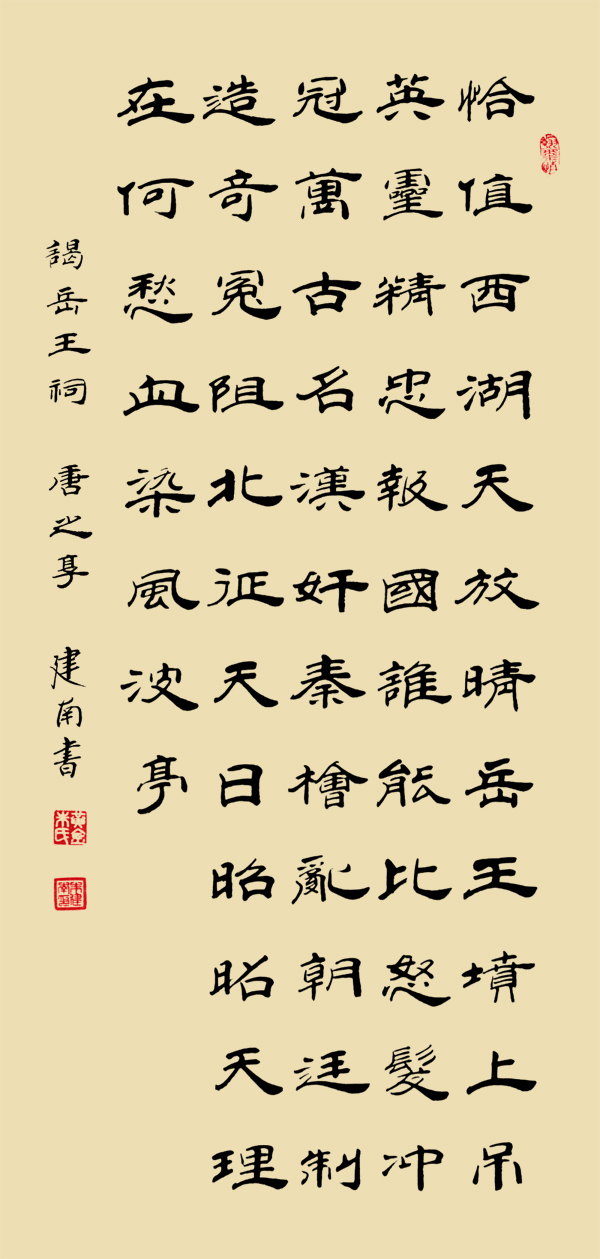 恰值西湖天放晴岳王墳上吊
英靈精忠報國誰能比怒髮冲
冠萬古名漢奸秦檜亂朝迋制
造奇冤阻北征天日昭昭天理
在何愁血染風波亭
謁岳王祠 唐之享 建南书